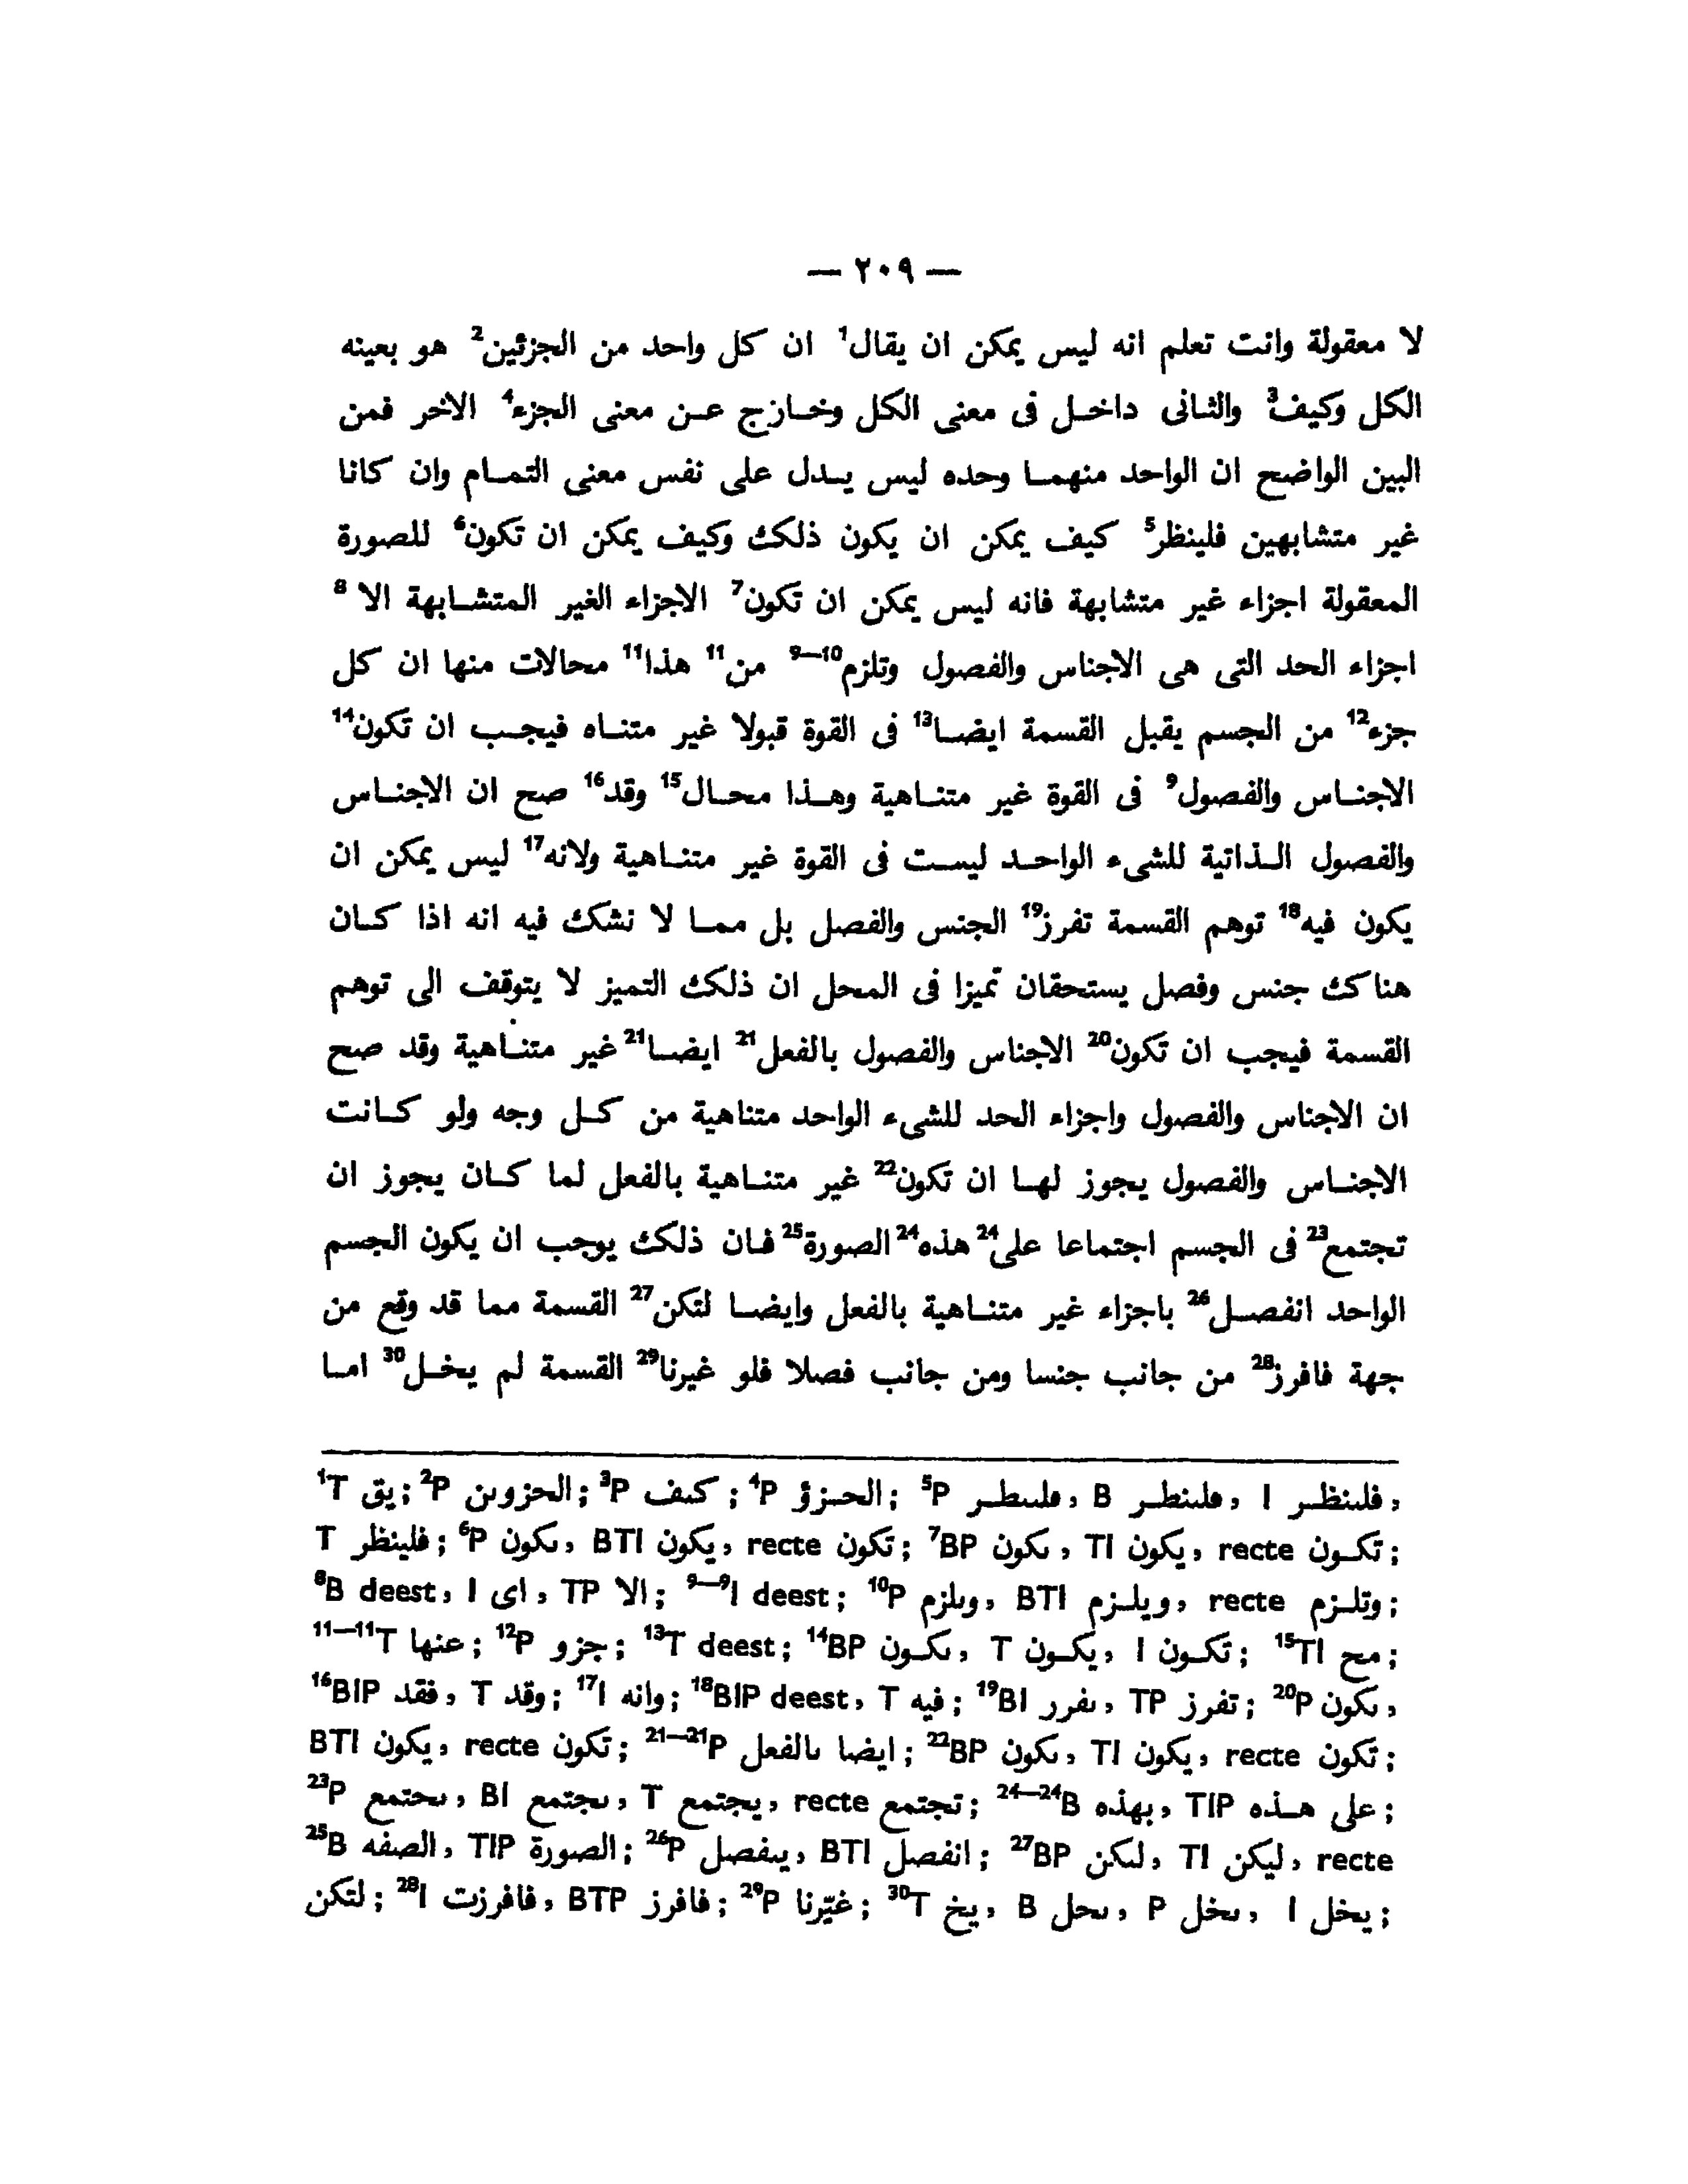 — ٢٠٩ —
لا معقولة وانت تعلم انه ليس يمكن ان يقال¹ ان كل واحد من الجزئين² هو بعينه
الكل وكيف³ والثانى داخل فى معنى الكل وخازج عن معنى الجزء⁴ الاخر فمن
البين الواضح ان الواحد منهما وحده ليس يدل على نفس معنى التمام وان كانا
غير متشابهين فلينظر⁵ كيف يمكن ان يكون ذلك وكيف يمكن ان تكون⁶ للصورة
المعقولة اجزاء غير متشابهة فانه ليس يمكن ان تكون⁷ الاجزاء الغير المتشابهة الا ⁸
اجزاء الحد التى هى الاجناس والفصول وتلزم⁹⁻¹⁰ من¹¹ هذا¹¹ محالات منها ان كل
جزء¹² من الجسم يقبل القسمة ايضا¹³ فى القوة قبولا غير متناه فيجب ان تكون¹⁴
الاجناس والفصول⁹ فى القوة غير متناهية وهذا محال¹⁵ وقد¹⁶ صح ان الاجناس
والفصول الذاتية للشىء الواحد ليست فى القوة غير متناهية ولانه¹⁷ ليس يمكن ان
يكون فيه¹⁸ توهم القسمة تفرز¹⁹ الجنس والفصل بل مما لا نشك فيه انه اذا كان
هناك جنس وفصل يستحقان تميزا فى المحل ان ذلك التميز لا يتوقف الى توهم
القسمة فيجب ان تكون²⁰ الاجناس والفصول بالفعل²¹ ايضا²¹ غير متناهية وقد صح
ان الاجناس والفصول واجزاء الحد للشىء الواحد متناهية من كل وجه ولو كانت
الاجناس والفصول يجوز لها ان تكون²² غير متناهية بالفعل لما كان يجوز ان
تجتمع²³ فى الجسم اجتماعا على²⁴ هذه²⁴ الصورة²⁵ فان ذلك يوجب ان يكون الجسم
الواحد انفصل²⁶ باجزاء غير متناهية بالفعل وايضا لتكن²⁷ القسمة مما قد وقع من
جهة فافرز²⁸ من جانب جنسا ومن جانب فصلا فلو غيرنا²⁹ القسمة لم يخل³⁰ اما
¹T يق; ²P الحزوىں; ³P كىف; ⁴P الحىزؤ; ⁵P ڡلىىطر, B ڡلىنطر, I فلىنظر,
T فلينظر; ⁶P ىكون, BTI يكون, recte تكون; ⁷BP ىكون, TI يكون, recte تكون;
⁸B deest, I اى, TP الا; ⁹⁻⁹I deest; ¹⁰P وىلزم, BTI ويلزم, recte وتلزم;
¹¹⁻¹¹T عنها; ¹²P جزو; ¹³T deest; ¹⁴BP ىكون, T يكون, I تكون; ¹⁵TI مح;
¹⁶BIP فقد, T وقد; ¹⁷I وانه; ¹⁸BIP deest, T فيه; ¹⁹BI ىفرر, TP تفرز; ²⁰P ىكون,
BTI يكون, recte تكون; ²¹⁻²¹P ايضا ىالفعل; ²²BP ىكون, TI يكون, recte تكون;
²³P ىحتمع, BI ىجتمع, T يجتمع, recte تجتمع; ²⁴⁻²⁴B بهذه, TIP على هذه;
²⁵B الصفه, TIP الصورة; ²⁶P يىفصل, BTI انفصل; ²⁷BP لىكن, TI ليكن, recte
لتكن; ²⁸I فافرزت, BTP فافرز; ²⁹P غيّرنا; ³⁰T يخ, B ىحل, P ىخل, I يخل;